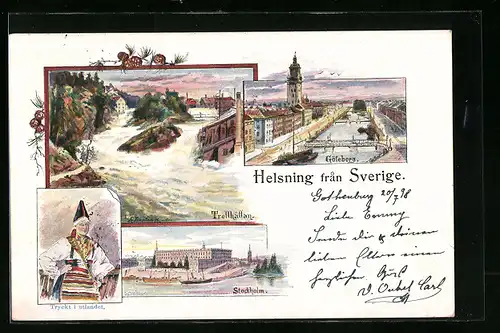 Göteborg.
Helsning från Sverige.
Trollhättan.
Stockholm.
Tryckt i utlandet.
Gothenburg 20/7 98
Liebe Emmy
Sende dir & deinen
lieben Eltern einen
herzlichen Gruß
d. Onkel Carl